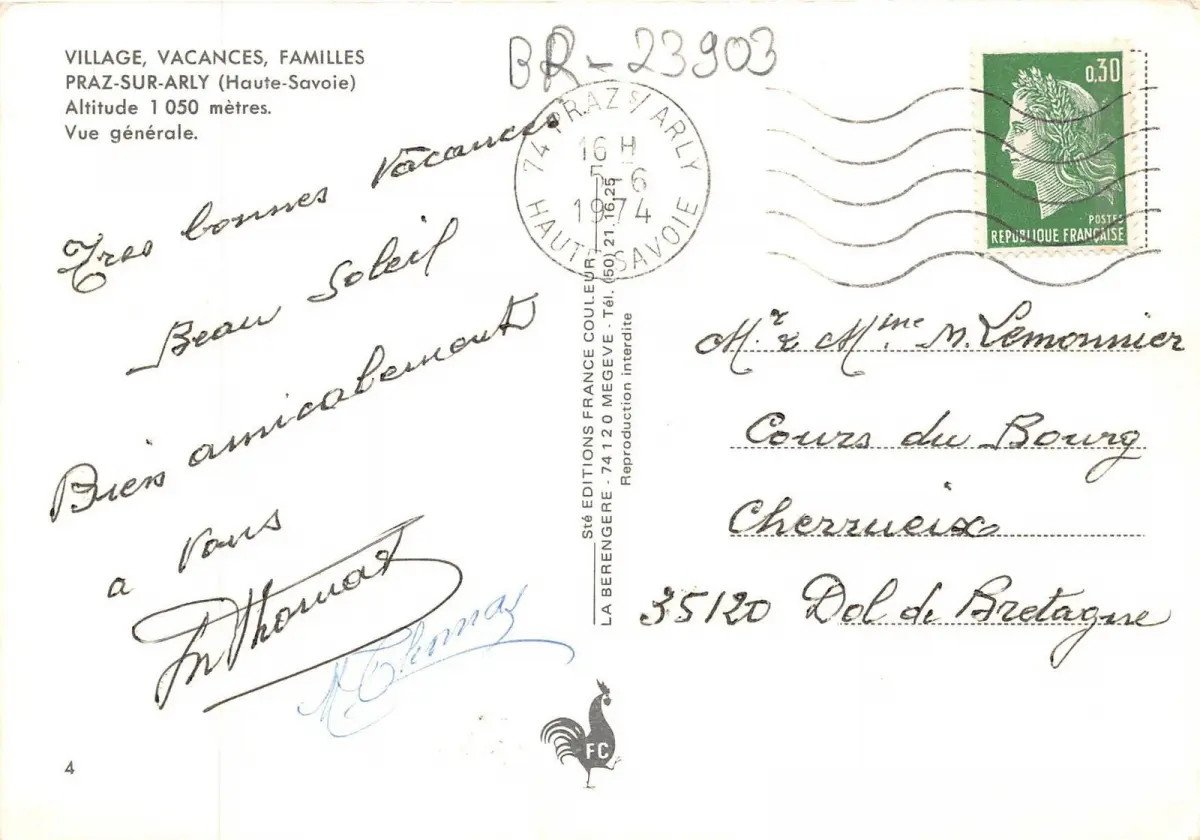 VILLAGE, VACANCES, FAMILLES
PRAZ-SUR-ARLY (Haute-Savoie)
Altitude 1 050 mètres.
Vue générale.
BR-23903
74 PRAZ S/ ARLY
16 H
5-6
1974
HAUTE SAVOIE
0,30
POSTES
REPUBLIQUE FRANÇAISE
Tres bonnes Vacances
Beau Soleil
Bien amicalement
a vous
Thomas
Thomas
Sté EDITIONS FRANCE COULEUR
LA BERENGERE - 74120 MEGEVE - Tél. (50) 21.16.25
Reproduction interdite
Mr & Mme M. Lemonnier
Cours du Bourg
Cherrueix
35120 Dol de Bretagne
FC
4